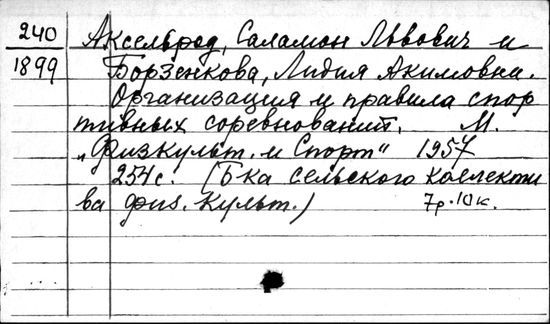 240 Аксельрод, Саламон Львович и
1899 Борзенкова, Лидия Акимовна.
Организация и правила спор
тивных соревнований. М.
„Физкульт. и Спорт" 1957
254 с. (Б-ка сельского коллекти
ва физ. культ.) 7р.10к.